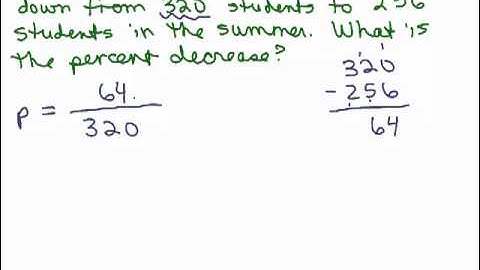 down from 320 students to 256
students in the summer. What is
the percent decrease?
p = 64.
320
320
- 256
64